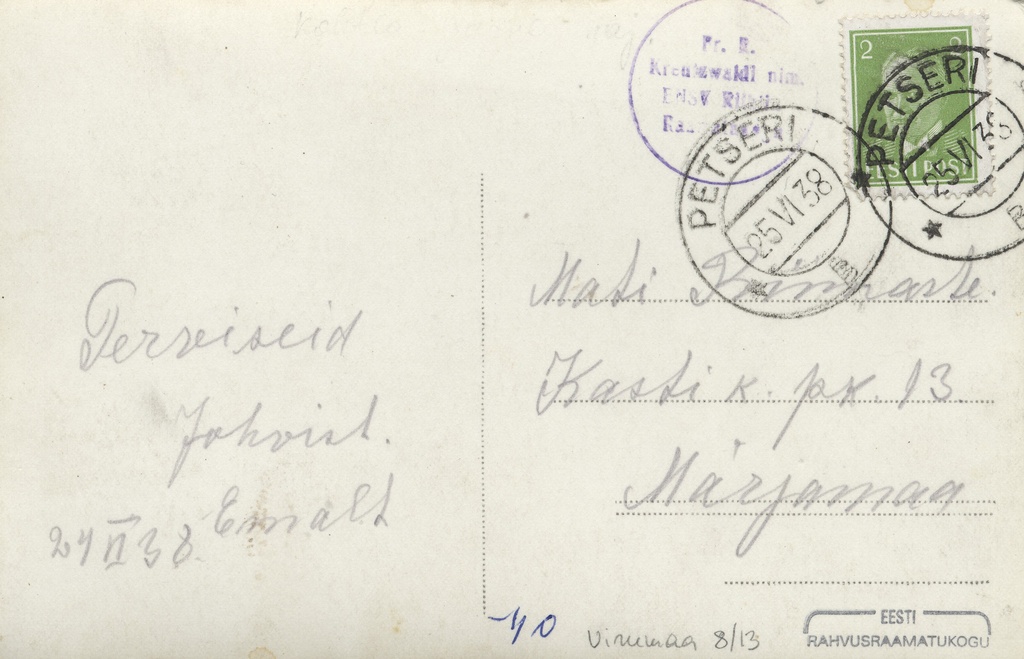 Fr. R.
Kreutzwaldi nim.
ENSV Riiklik
2 2
EESTI POST
PETSERI
25 VI 38
B
PETSERI
25 VI 38
Terviseid
Johvist.
Emalt
24 VI 38.
Mati
Kasti k. pk. 13.
Märjamaa
-40
Virumaa 8/13
EESTI
RAHVUSRAAMATUKOGU